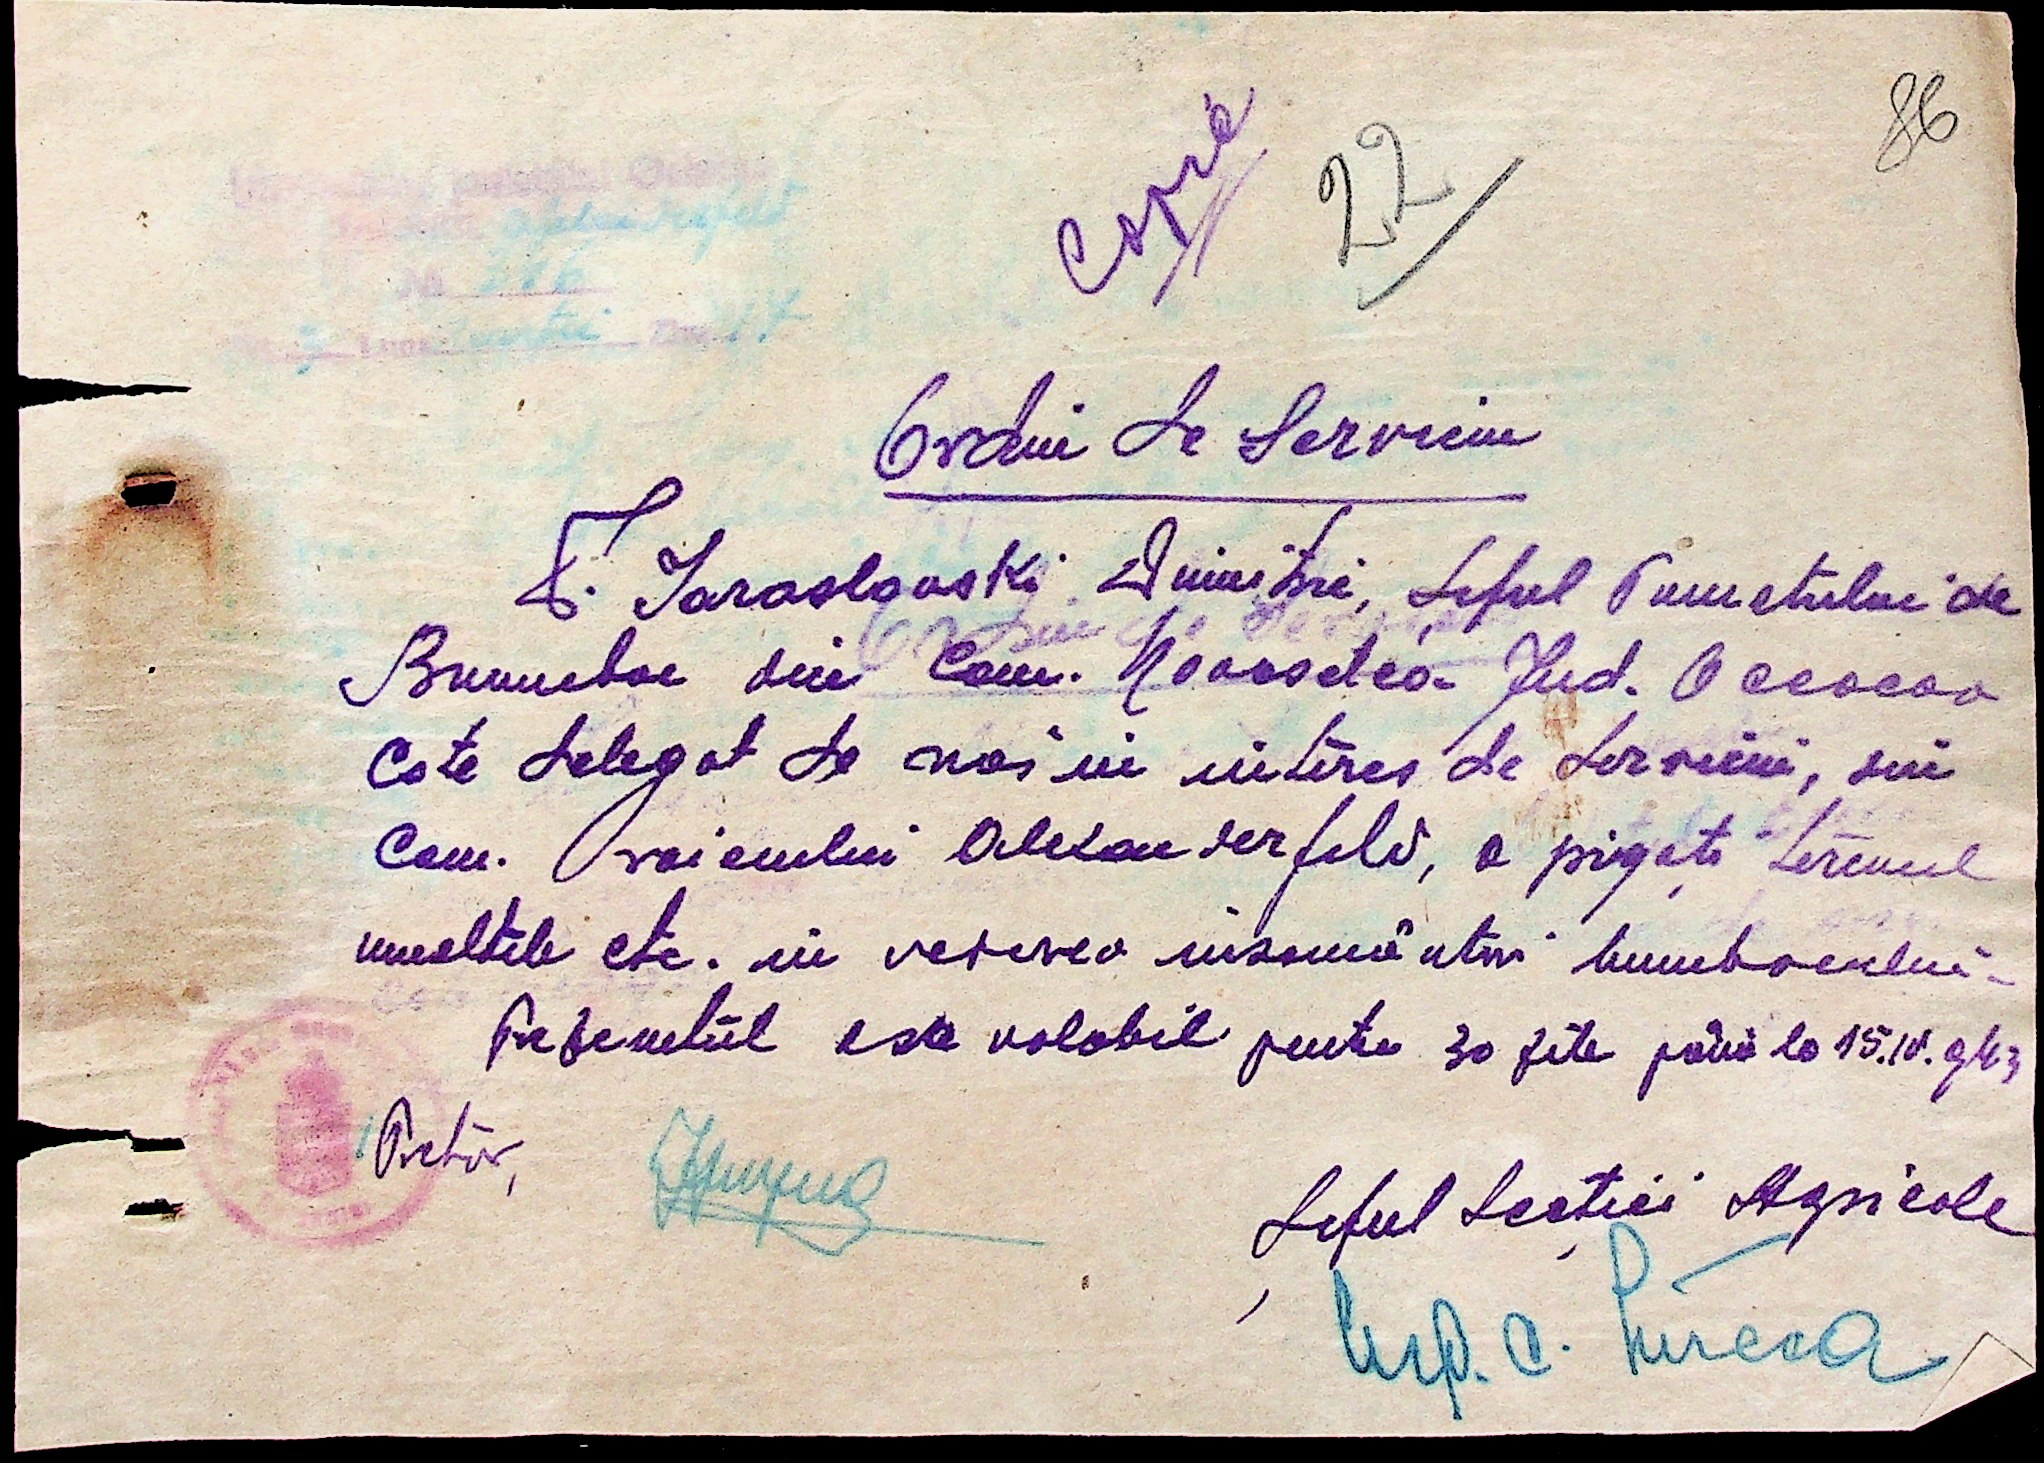 86
Copie
22
Ordin de Serviciu
D. Iaroslavski Dimitrie, Șeful Punctului de
Bumbac din Com. Novoselco Jud. Oceacov
Este delegat de noi in interes de serviciu, din
Com. Raionului Alexanderfeld, a pregăti terenul
uneltele etc. in vederea însământări bumbacului-
Prezentul este valabil pentru 30 zile până la 15.IV.943
Pretor,
Șeful Secției Agricole
Insp. C.